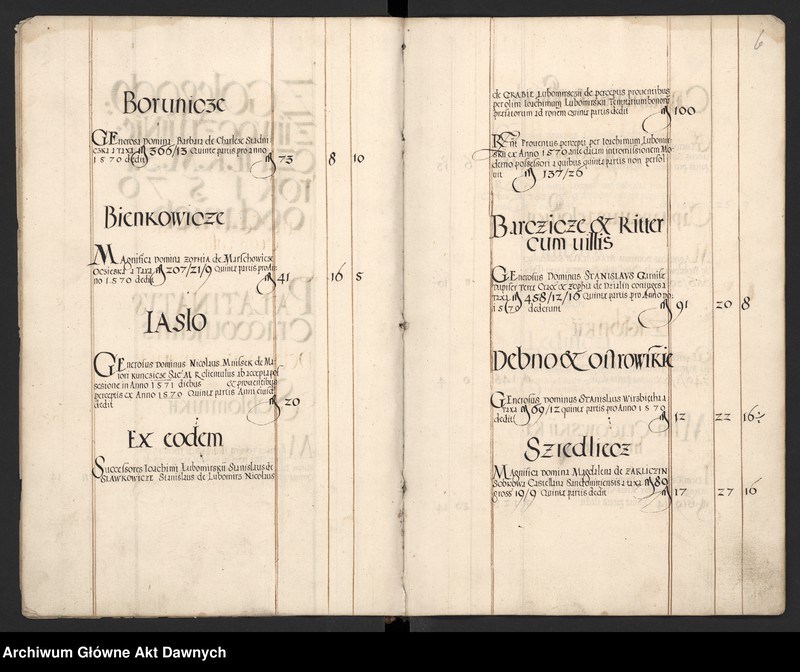 Borunicze
GEnerosa Domina Barbara de Charlexe Stadni
cska a taxa 366/13 Quinte partis pro anno
1570 dedit 73 8 10
Bienkowicze
MAgnifica Domina zophia de Marschowicze
Oczieska a Taxa 207/21/9 Quinta partis pro An
no 1570 dedit 41 16 5
IASLO
GEnerosus Dominus Nicolaus Mnissek de Ma
iori kunczicze Sac M R
sesione in Anno 1571 diebus & prouentibus
perceptis ex Anno 1570 Quinta partis Anni eiusdem
dedit 20
Ex eodem
Successores Ioachimi Lubomirskii Stanislaus de
SLAWKOWICZE Stanislaus de Lubomirz Nicolaus
6
de GRABIE Lubomirscii de perceptis prouentibus
per olim Ioachimum Lubomirskii Tenutarium bonorum
prefatorum ad ronem quinte partis dedit 100
Rnt Prouentus percepti per Ioachimum Lubomir
skii ex Anno 1570 ante datam intromissionem Mo
derno possessori a quibus quinta partis non persol
uit 137/26
Barczicze & Ritter
cum uillis
GEnerosus Dominus STANISLAVS Garnise
Dapifer Terre Crace & Zophia de Dzialin coniuges a
taxa 458/12/16 Quinte partis pro Anno
1570 dederunt 91 20 8
Debno & Ostrowikie
GEnerosus Dominus Stanislaus Wirzbietha a
taxa 69/12 quinte partis pro Anno 1570
dedit 12 22 16
Sziedliecz
MAgnifica Domina Magdalena de ZAKLICZIN
Sobkowa Castellana Sandomiriensis a taxa 89
gross 19/9 Quinte partis dedit 17 27 16
Archiwum Główne Akt Dawnych